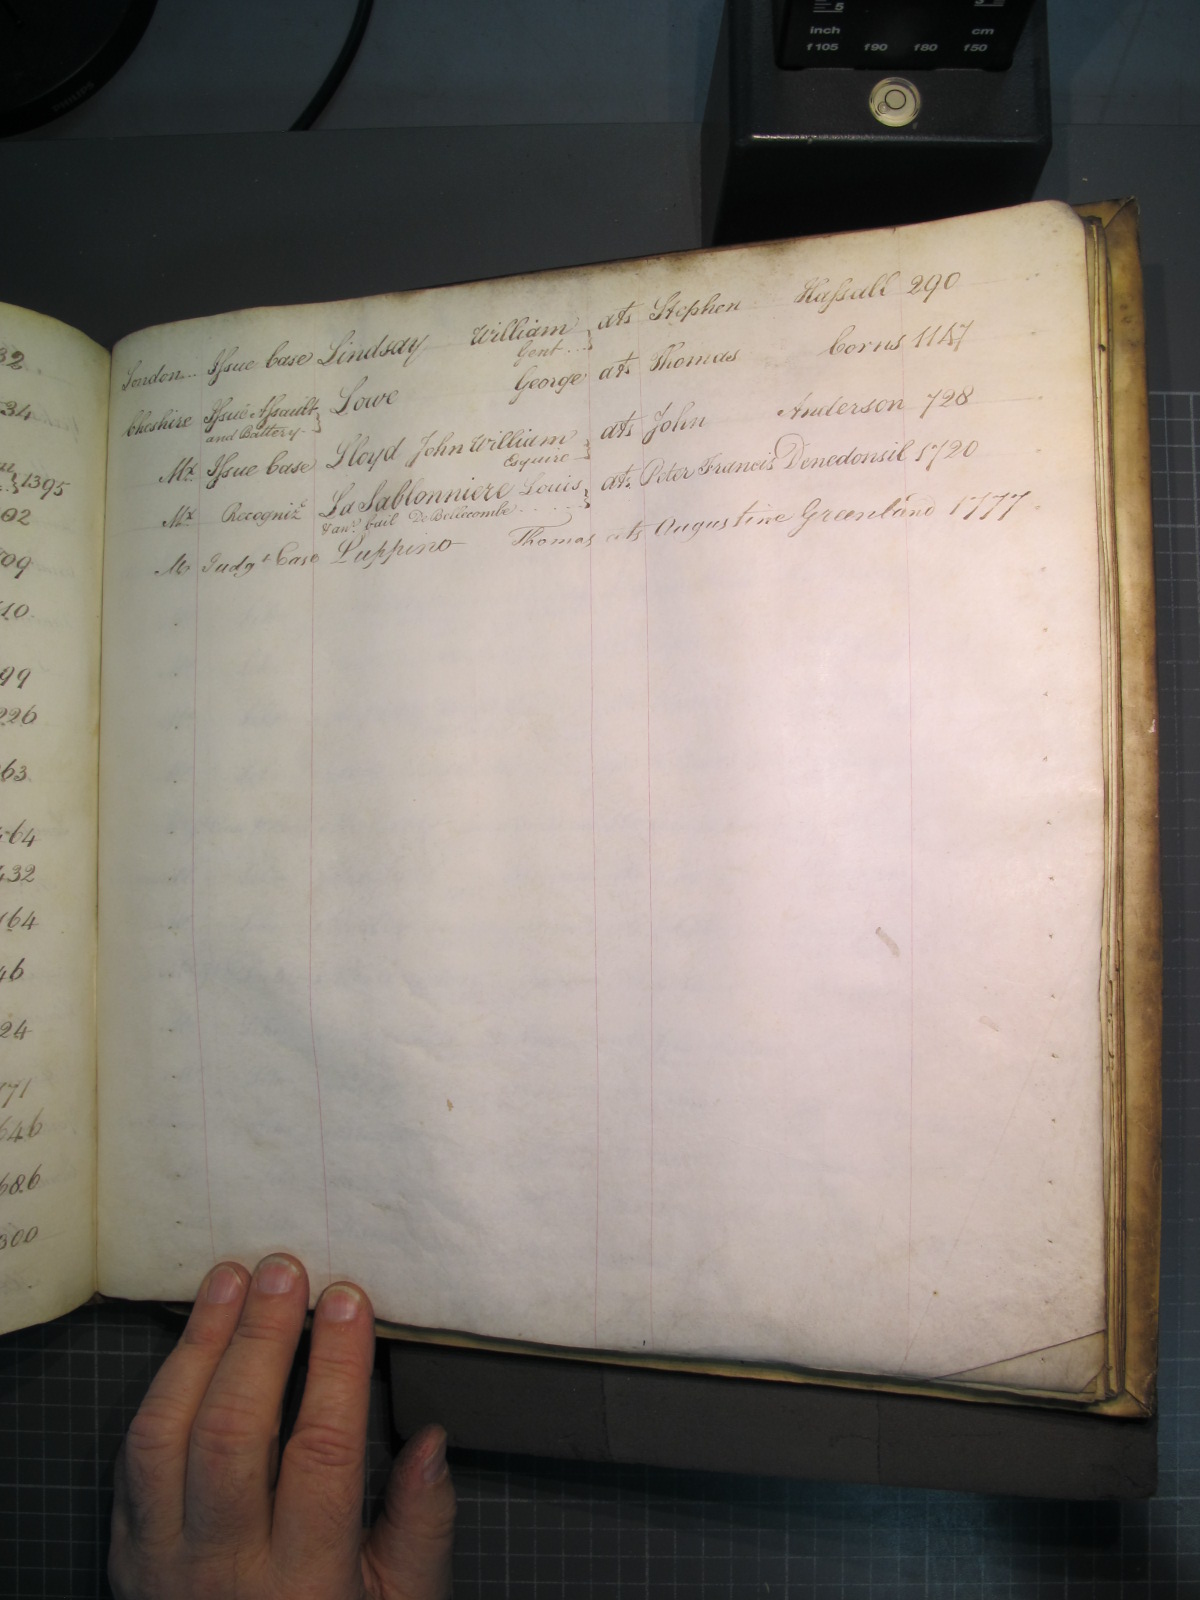 5
inch cm
1105 190 180 150
PHILIPS
32
34
1395
02
09
10
99
226
63
64
432
164
46
24
171
646
686
300
London... Ifsue Case Lindsay William ats Stephen Hafsall 290
Gent...
Cheshire Ifsue Afsault Lowe George ats Thomas Corns 1147
and Battery
Mx Ifsue Case Lloyd John William ats John Anderson 728
Esquire
Mx Recogniz.e La Sablonniere Louis ats Peter Francis Denedonsil 1720
bail De Bellecombe
Mx Judgt Case Luppino Thomas ats Augustine Greenland 1777